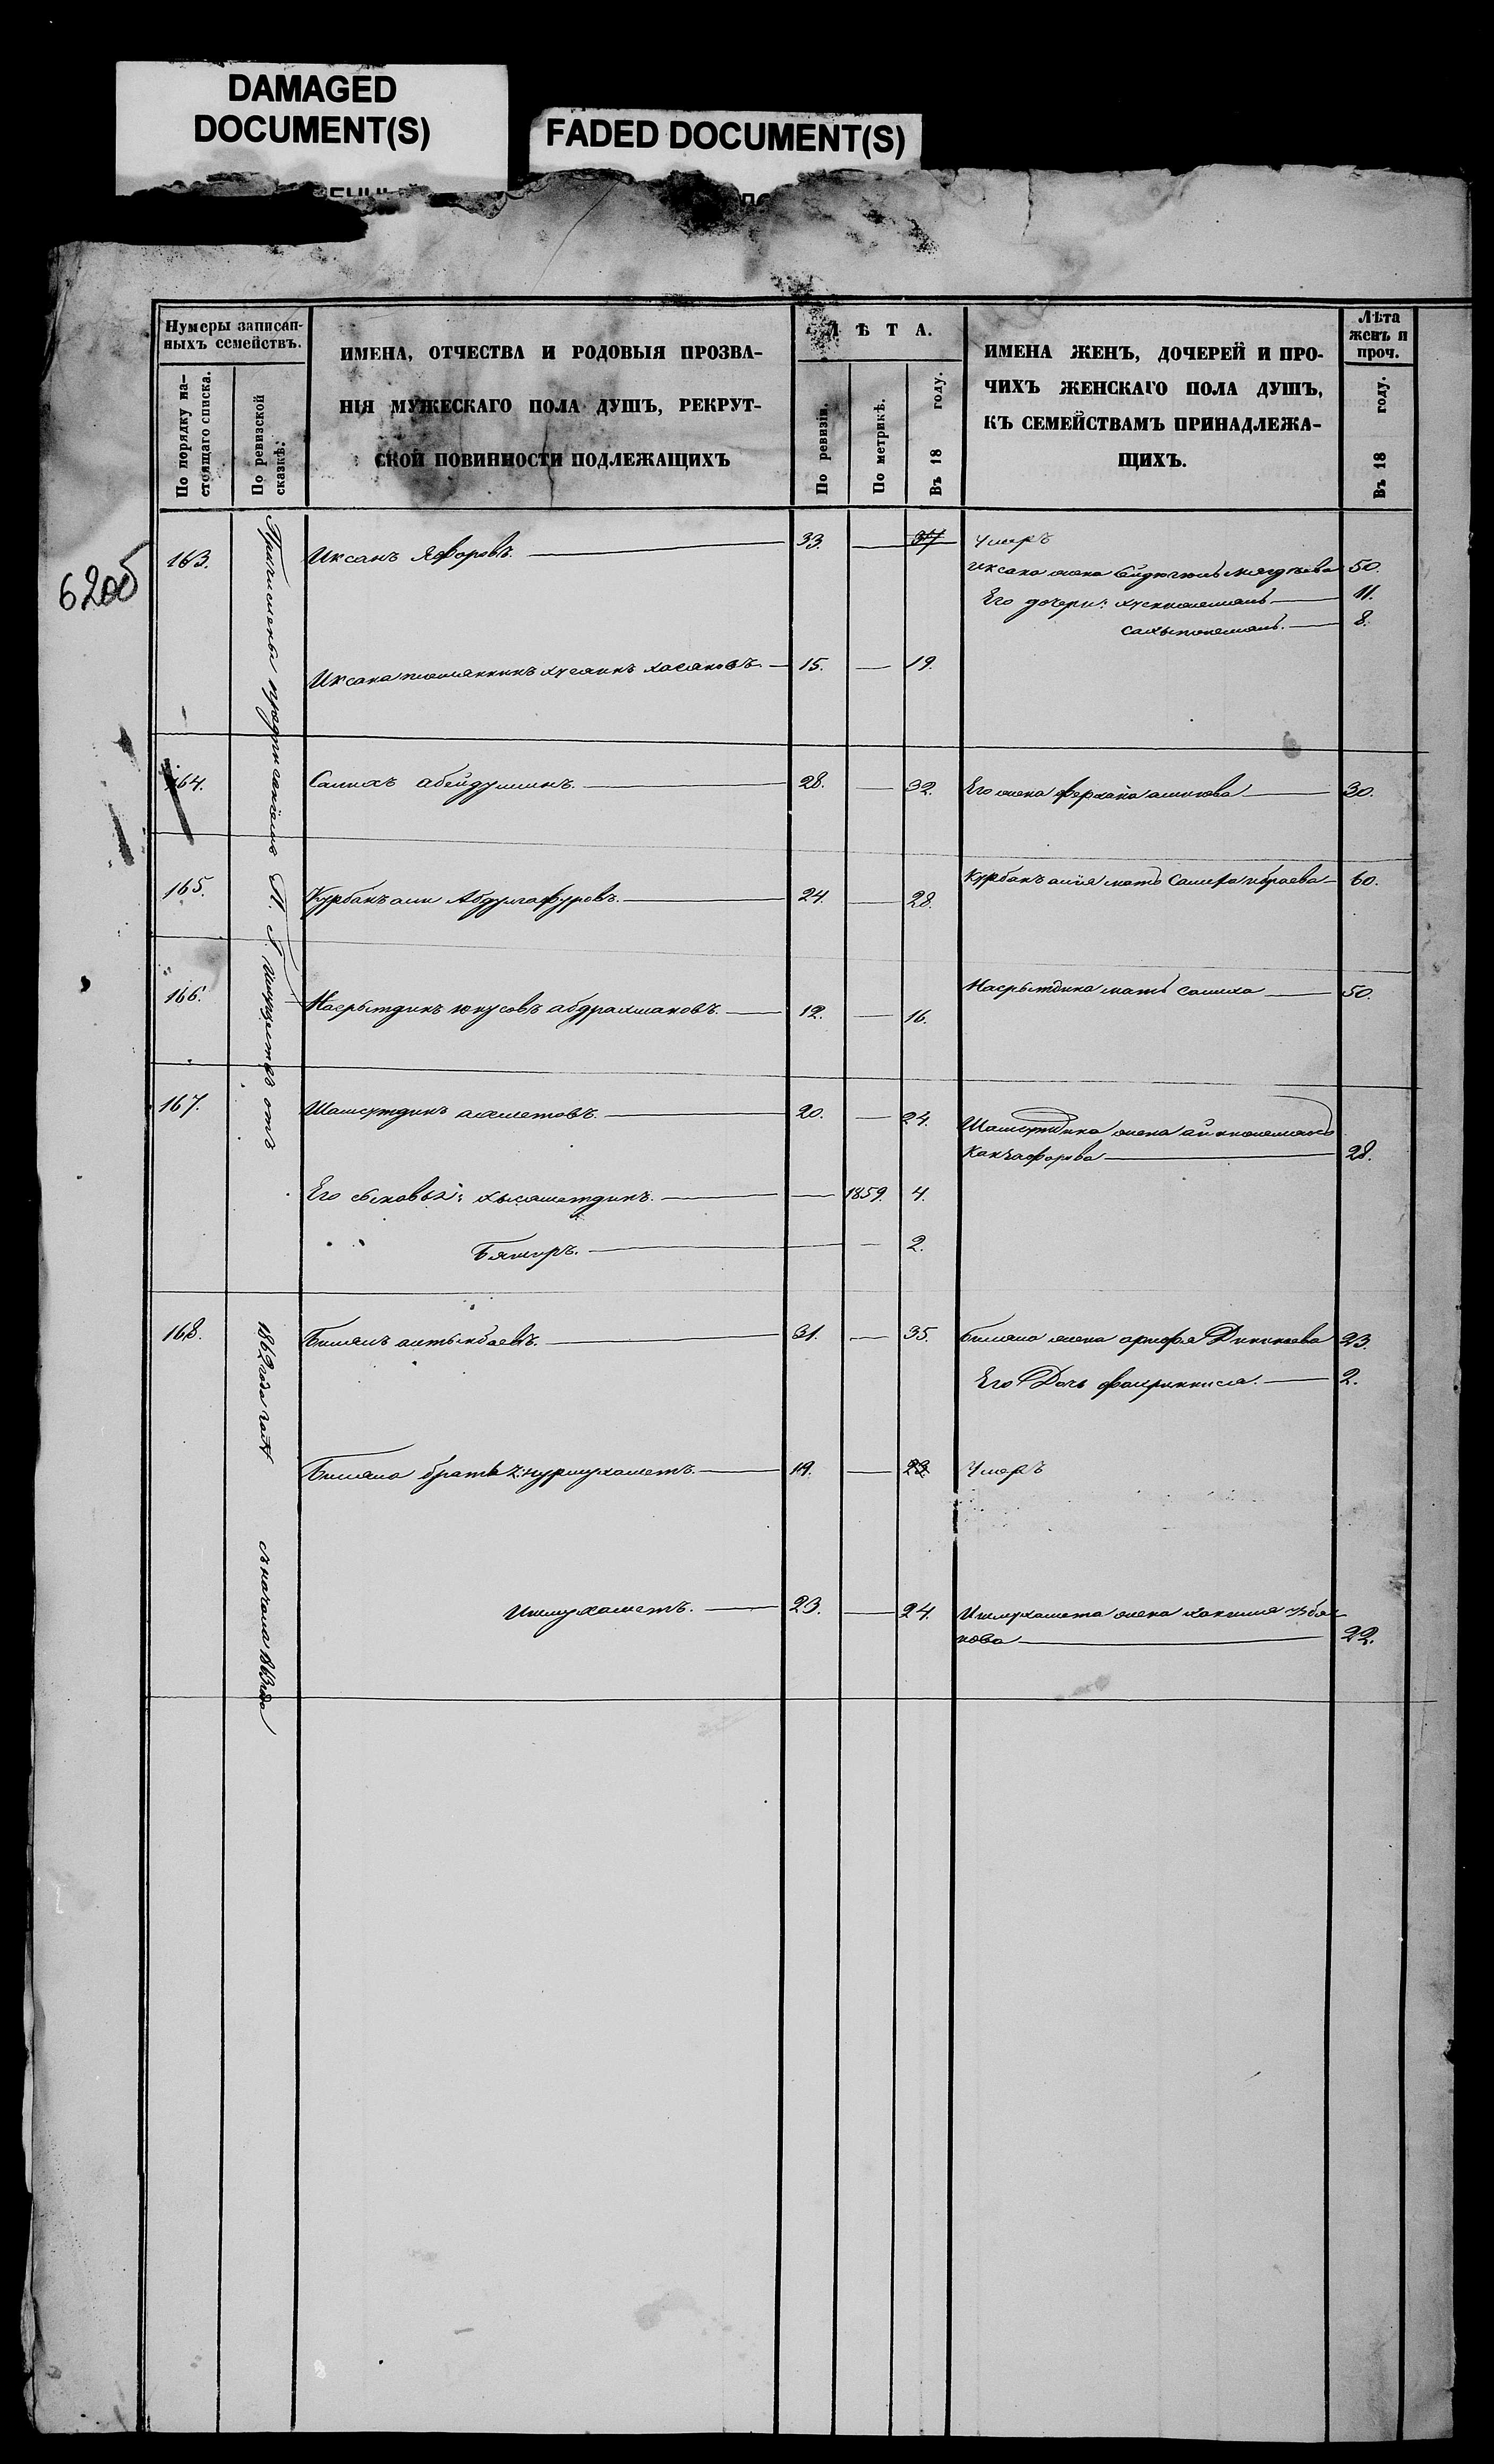 DAMAGED
DOCUMENT(S)
FADED DOCUMENT(S)
Нумеры записан-
ныхъ семействъ.
По порядку на-
стоящаго списка.
По ревизской
сказкѣ:
ИМЕНА, ОТЧЕСТВА И РОДОВЫЯ ПРОЗВА-
НІЯ МУЖЕСКАГО ПОЛА ДУШЪ, РЕКРУТ-
СКОЙ ПОВИННОСТИ ПОДЛЕЖАЩИХЪ
ЛѢТА.
По ревизіи.
По метрикѣ.
Въ 18 году.
ИМЕНА ЖЕНЪ, ДОЧЕРЕЙ И ПРО-
ЧИХЪ ЖЕНСКАГО ПОЛА ДУШЪ,
КЪ СЕМЕЙСТВАМЪ ПРИНАДЛЕЖА-
ЩИХЪ.
Лѣта
женъ и
проч.
Въ 18 году.
62об
Причислены предписаніемъ П. Г. Имуществъ отъ
1862 года за №
съ начала 1863 года
163. Иксанъ Яфаровъ. 33. — 37 Умеръ
Иксана жена 50.
Его дочери: 11.
8.
Иксана племянникъ хусаинъ хасановъ 15. — 19.
164. Салихъ абейдуллинъ. 28. — 32. Его жена 30.
165. Курбанъ али Абдулгафуровъ. 24. — 28. Курбанъ алія мать 60.
166. Насрытдинъ юнусовъ абдрахмановъ. 12. — 16. Насрытдина мать салиха 50.
167. Шамсутдинъ ахметовъ. 20. — 24. Шамсутдина жена
28.
Его сыновья: хысаметдинъ. — 1859. 4.
Бяширъ. — 2.
168. Билялъ алтынбаевъ. 31. — 35. Биляла жена 23.
Его Дочь 2.
Биляла братья 2: нурмухаметъ. 19. — 23. Умеръ
Ишмухаметъ. 23. — 24. Ишмухамета жена
22.